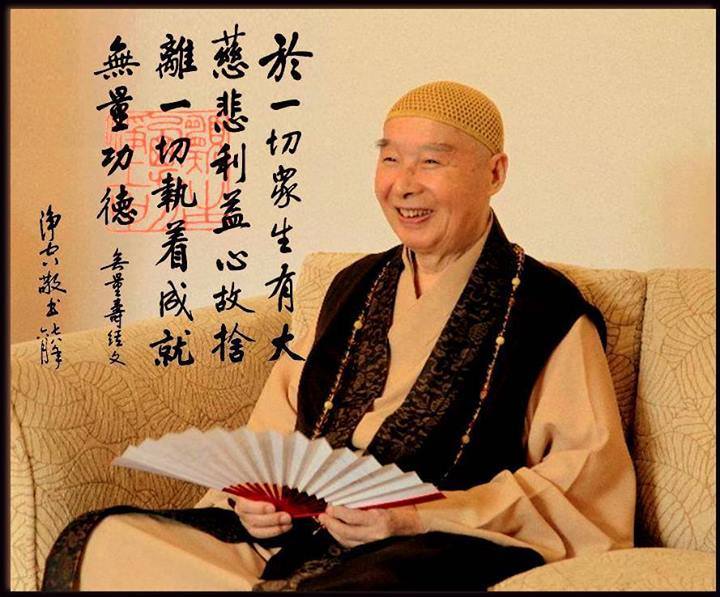 於一切衆生有大
慈悲利益心故捨
離一切執着成就
無量功德
無量壽經文
淨空敬書